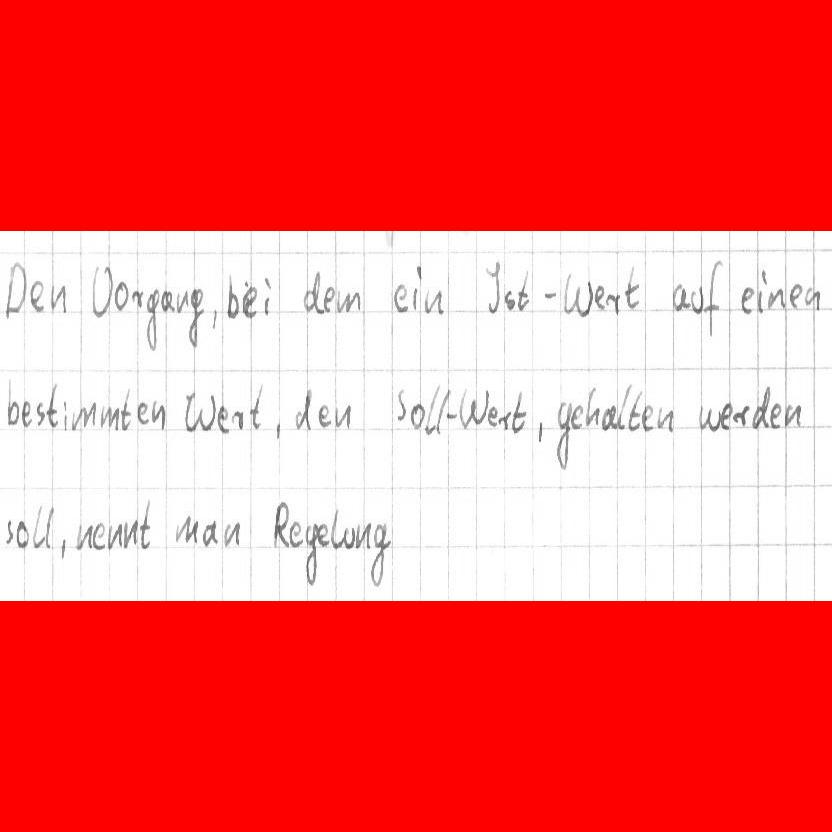 Den Vorgang, bei dem ein Ist-Wert auf einen
bestimmten Wert, den Soll-Wert, gehalten werden
soll, nennt man Regelung